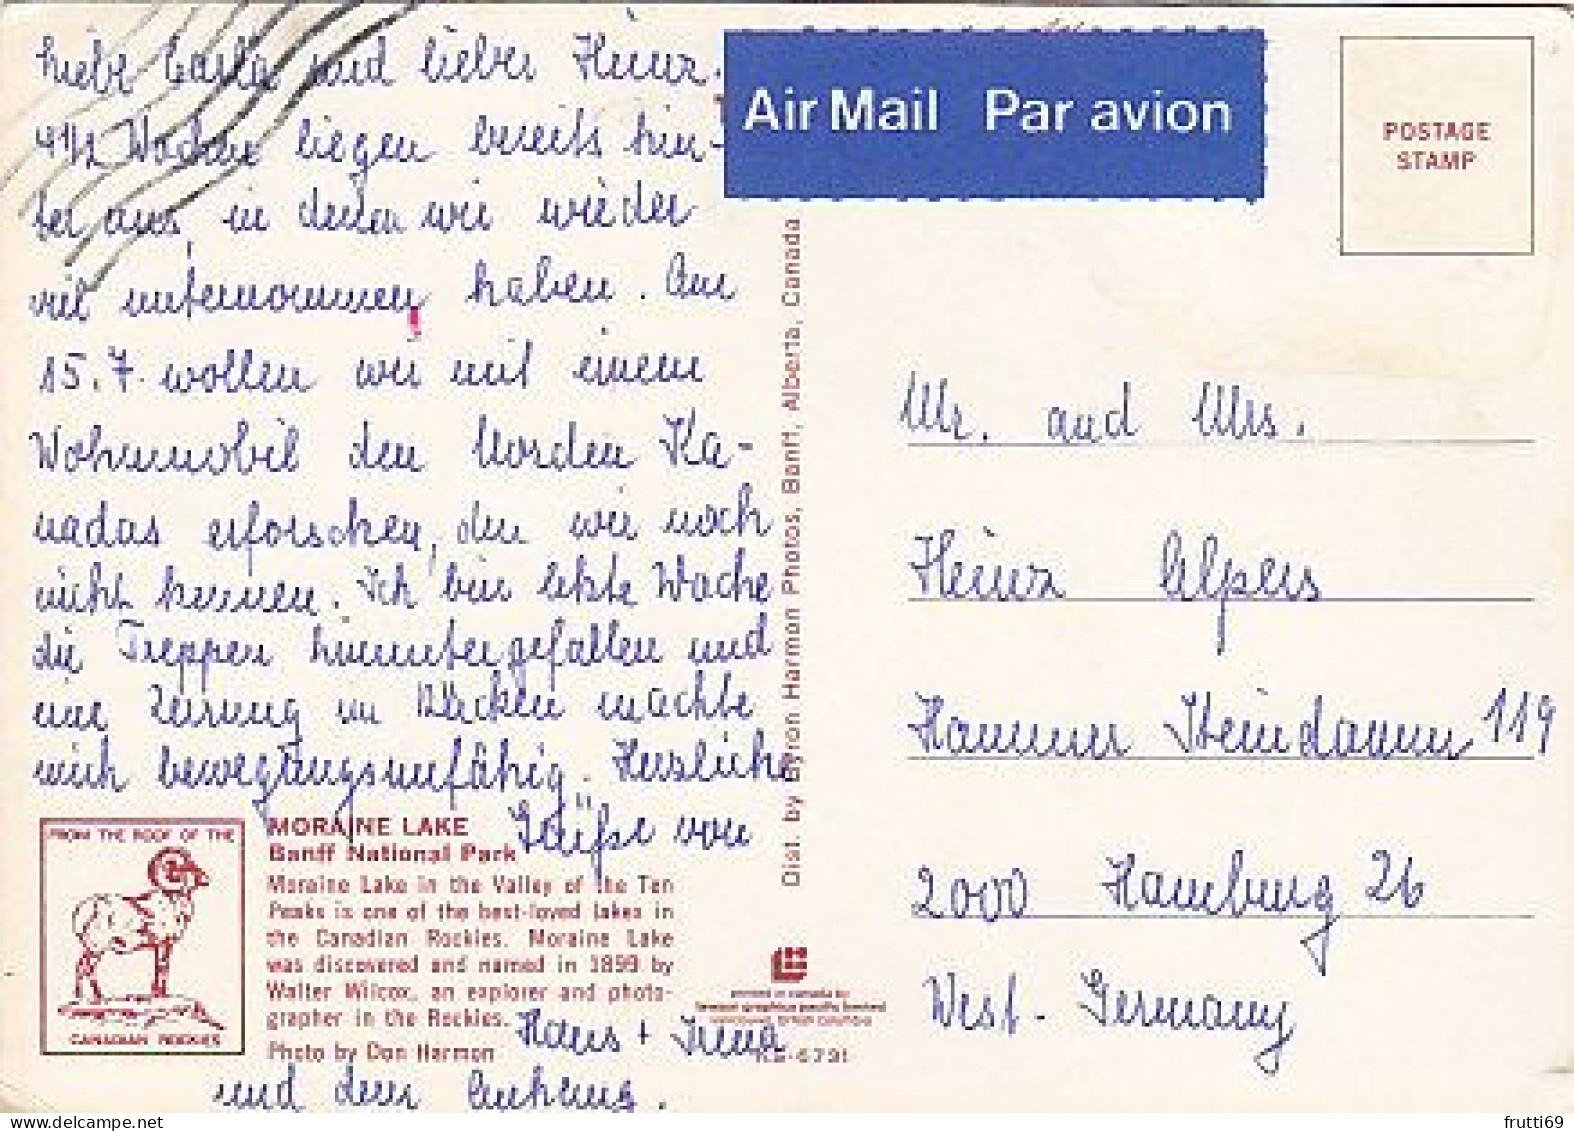 Liebe Carla und lieber Heinz.
4 1/2 Wochen liegen bereits hin-
ter uns, in denen wir wieder
viel unternommen haben. Am
15.7. wollen wir mit einem
Wohnmobil den Norden Ka-
nadas erforschen, den wir noch
nicht kennen. Ich bin letzte Woche
die Treppen hinuntergefallen und
eine Zerrung im Rücken machte
mich bewegungsunfähig. Herzliche
Grüße von
Hans + Irena
und dem Anhang.
Air Mail Par avion
POSTAGE
STAMP
Mr. and Mrs.
Heinz Alpers
Hammer Steindamm 119
2000 Hamburg 26
West-Germany
Dist. by Byron Harmon Photos, Banff, Alberta, Canada
FROM THE ROOF OF THE
CANADIAN ROCKIES
MORAINE LAKE
Banff National Park
Moraine Lake in the Valley of the Ten
Peaks is one of the best-loved lakes in
the Canadian Rockies. Moraine Lake
was discovered and named in 1899 by
Walter Wilcox, an explorer and photo-
grapher in the Rockies.
Photo by Don Harmon
printed in canada by
KS-6791
frutti69